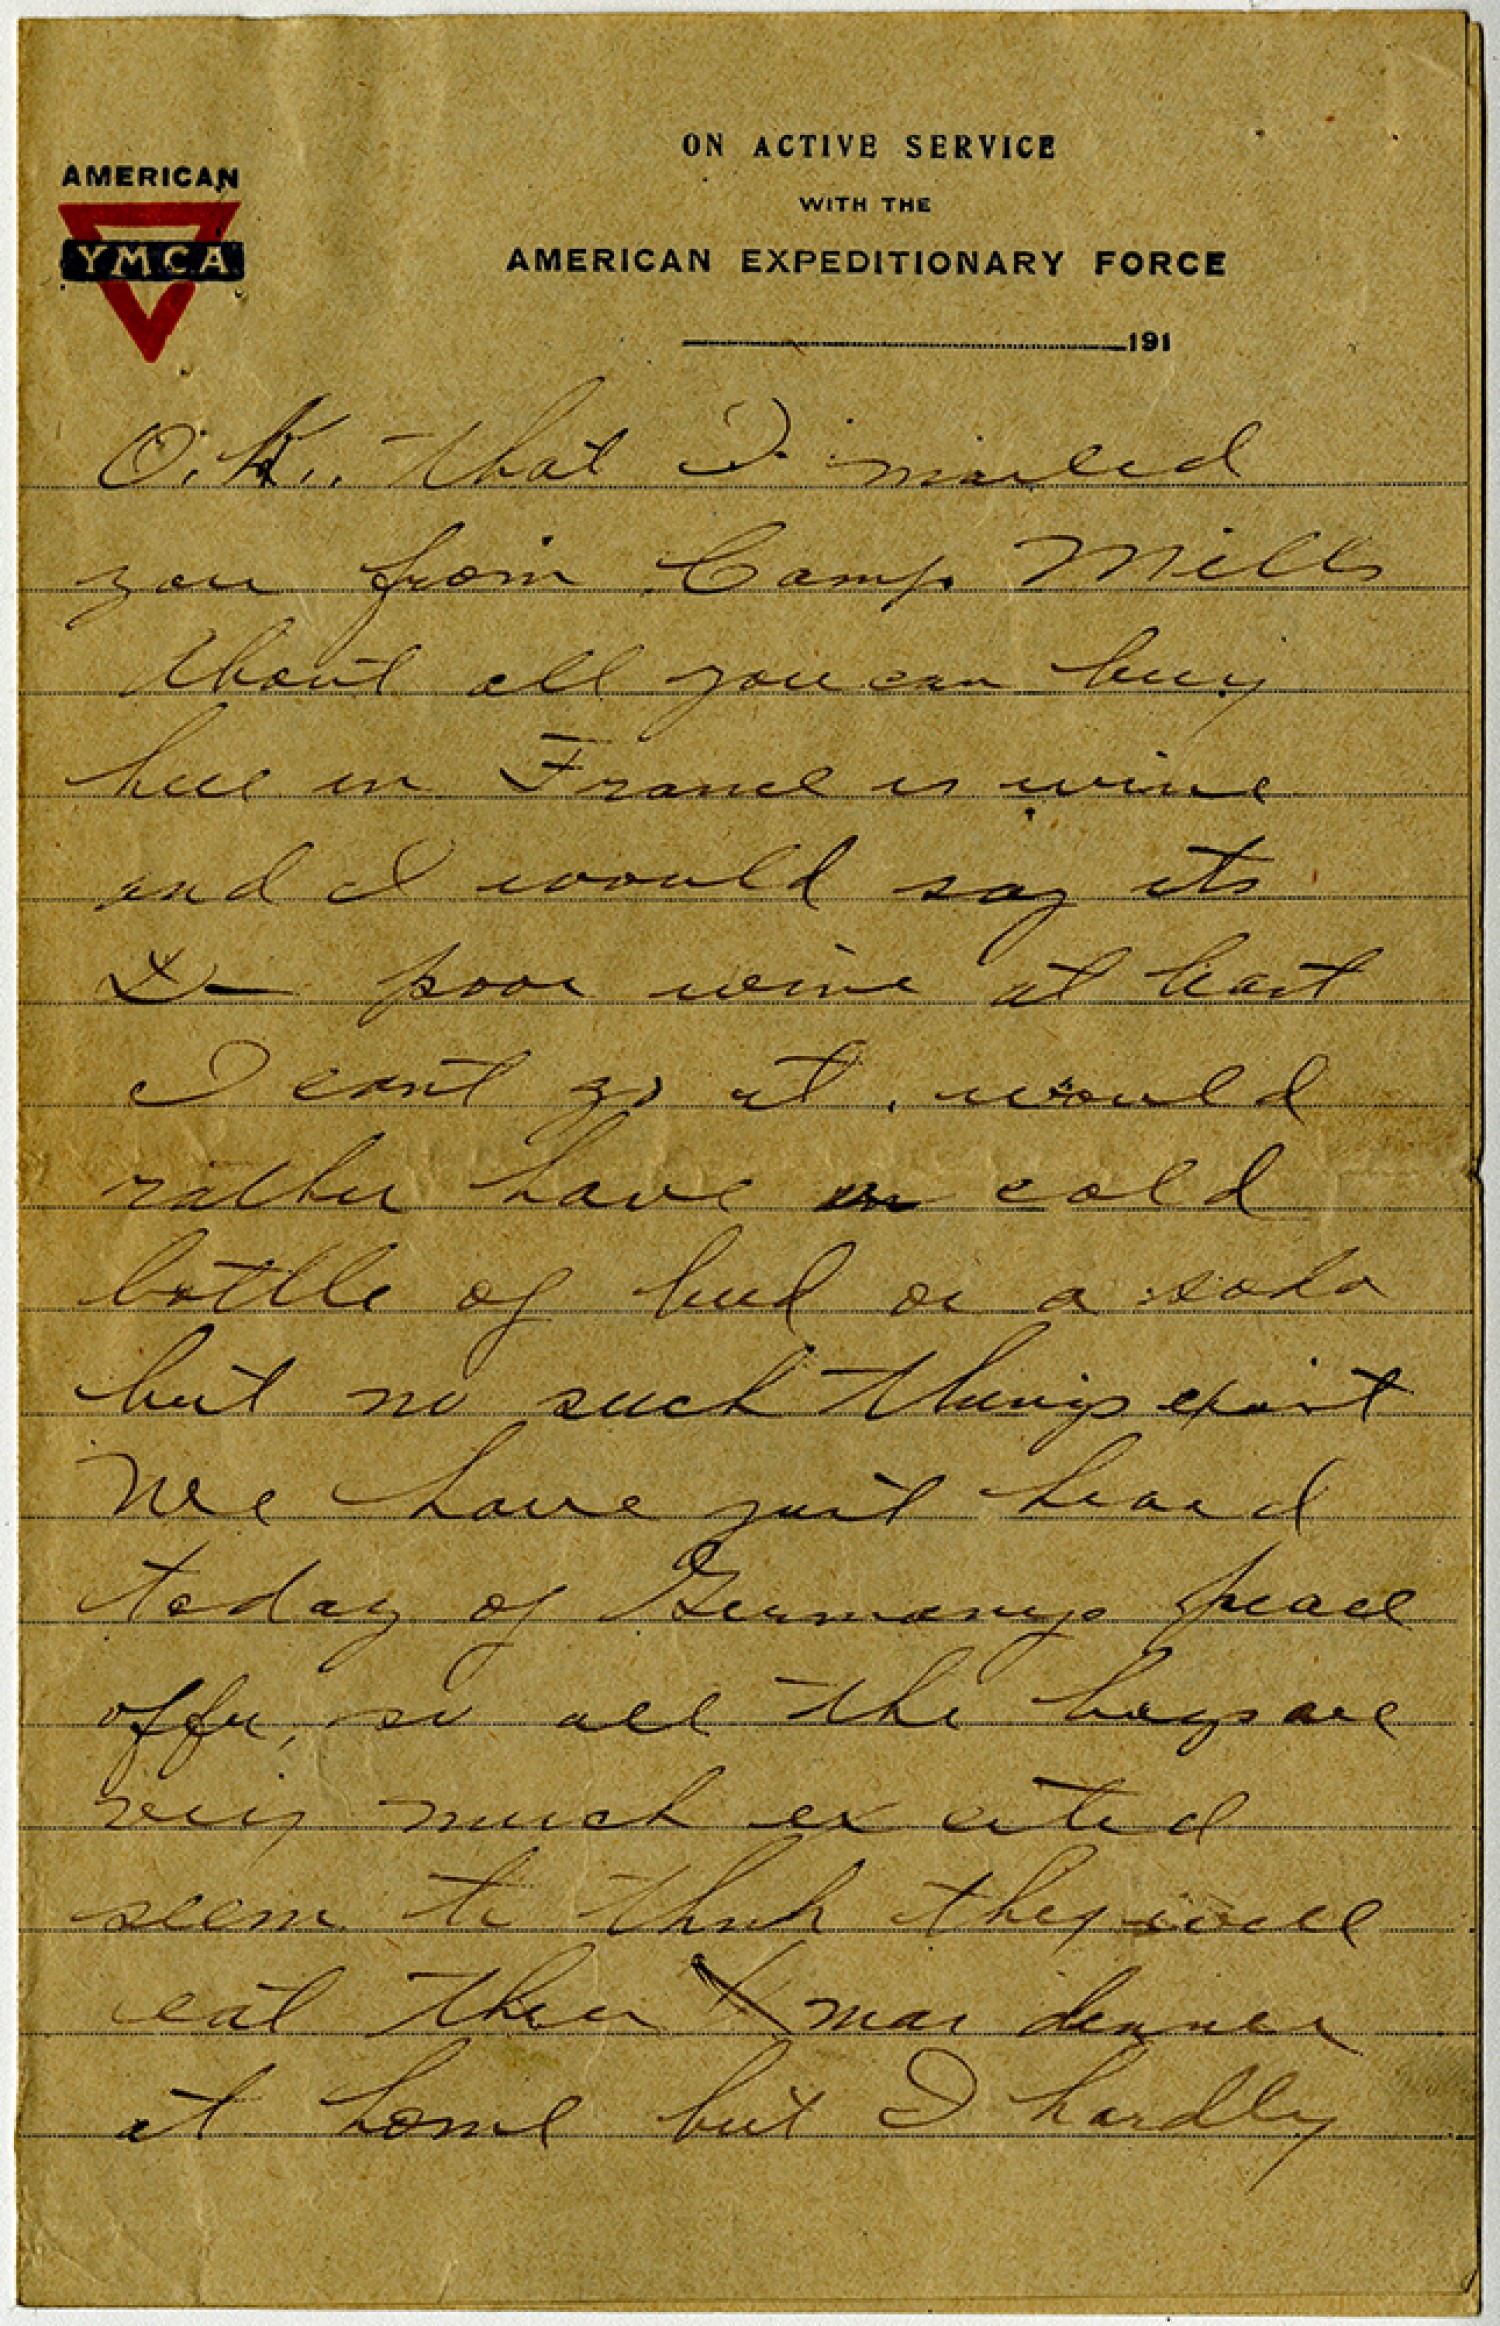 ON ACTIVE SERVICE
WITH THE
AMERICAN EXPEDITIONARY FORCE
AMERICAN
YMCA
191
O.K.. that I mailed
you from Camp Mills
About all you can buy
here in France is wine
and I would say its
D— poor wine at least
I cant go it, would
rather have a cold
bottle of bud or a soda
but no such things exist
We have just heard
today of Germanys peace
offer, so all the boys are
very much excited
seem to think they will
eat their Xmas dinner
at home but I hardly